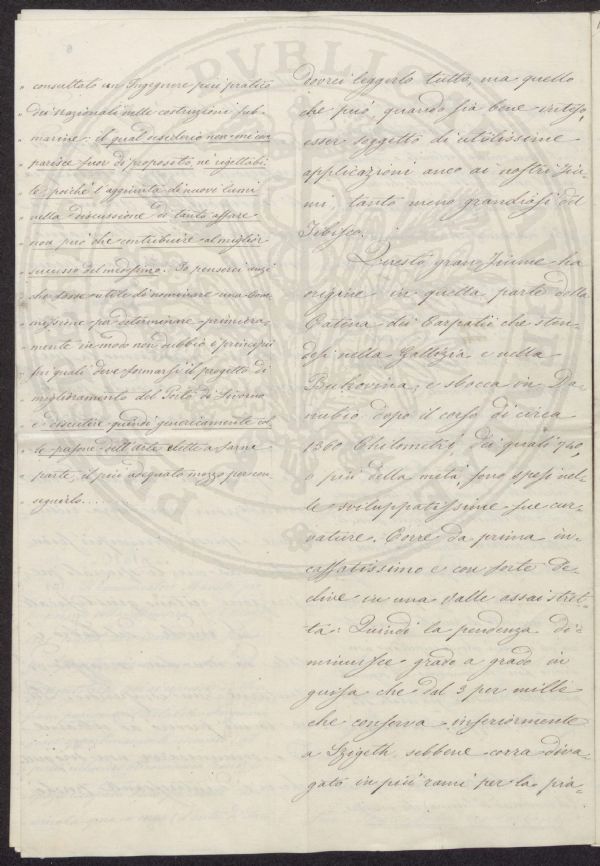 " consultato un Ingegnere più pratico
" dei nazionali nelle costruzioni sub-
" marine: il qual desiderio non mi com-
" parisce fuor di proposito, nè rigettabi-
" le poichè l'aggiunta di nuovi lumi
" nella discussione di tanto affare
" non può che contribuire al miglior
" successo del medesimo. Io penserei anzi
" che fosse utile di nominare una Com-
" missione per determinare primiera-
" mente in modo non dubbio i principii
" sui quali deve formarsi il progetto di
" miglioramento del Porto di Livorno
" e discutere quindi genericamente col-
" le persone dell'arte elette a farne
" parte, il più adeguato mezzo per con-
" seguirlo....
dovrei leggerlo tutto, ma quello
che può, quando sia bene inteso,
esser soggetto di utilissime
applicazioni anco ai nostri Fiu-
mi, tanto meno grandiosi del
Tibisco.
Questo gran Fiume ha
origine in quella parte della
Catena dei Carpatii che sten-
desi nella Gallizia e nella
Bukovina, e sbocca in Da-
nubio dopo il corso di circa
1360 Chilometri, dei quali 740,
o più della metà, sono spesi nel-
le sviluppatissime sue cur-
vature. Corre da prima in-
cassatissimo e con forte de-
clive in una valle assai stret-
ta: Quindi la pendenza di-
minuisce grado a grado in
guisa che dal 3 per mille
che conserva inferiormente
a Szigeth, sebbene corra diva-
gato in più rami per la pia-